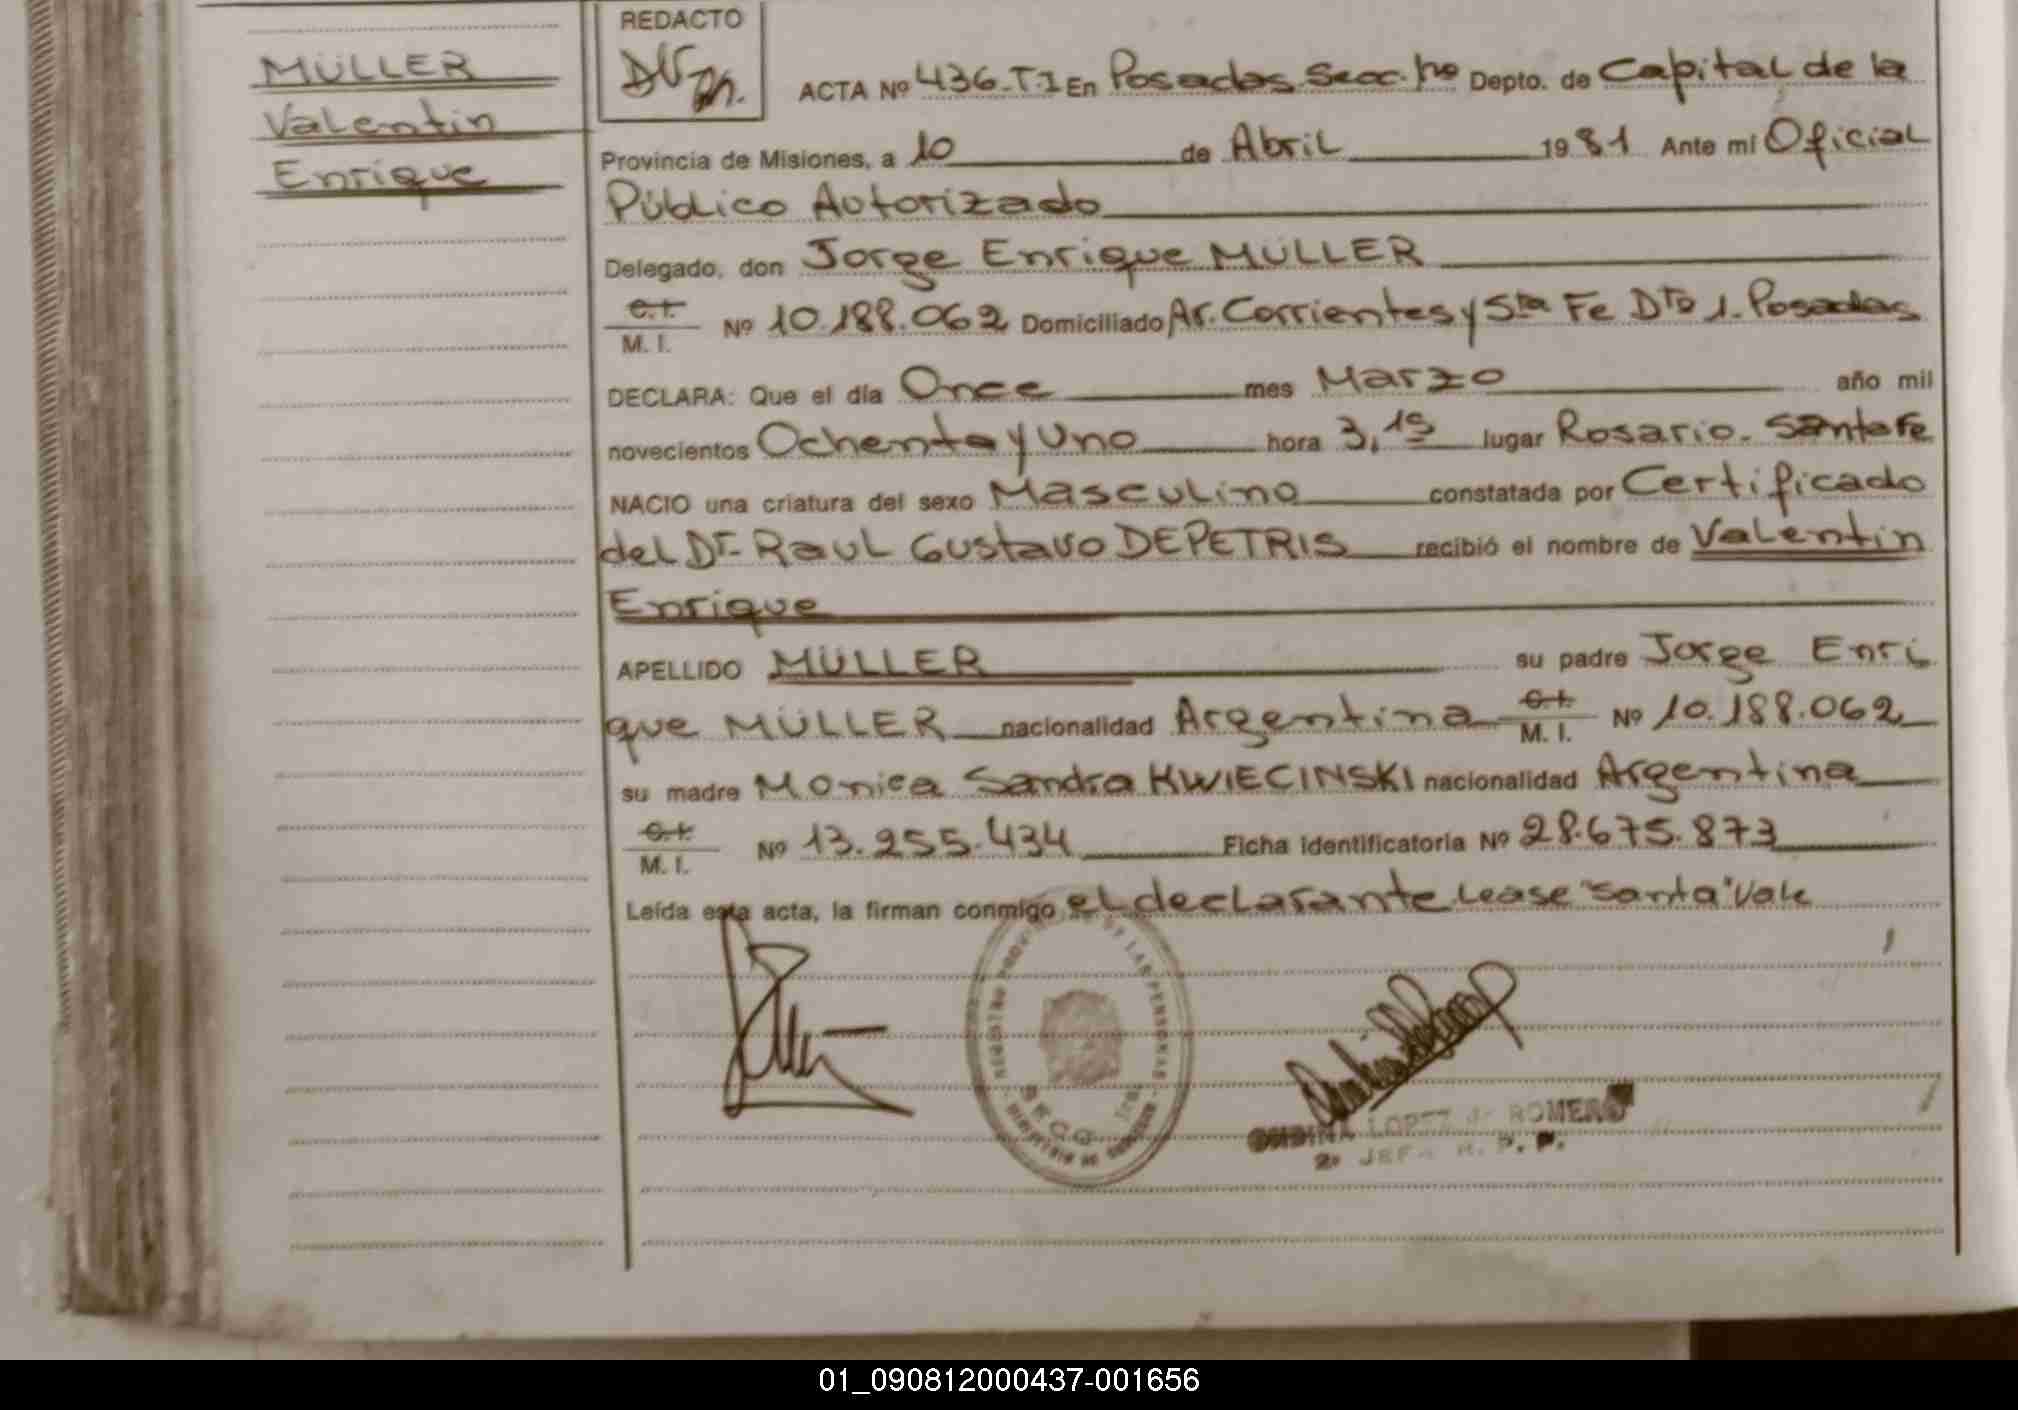 MÜLLER
Valentin
Enrique
REDACTO
ACTA Nº 436-T.I En Posadas Secc. 1ra Depto. de Capital de la
Provincia de Misiones, a 10 de Abril 1981 Ante mí Oficial
Público Autorizado
Delegado, don Jorge Enrique MÜLLER
C.I. M. I. Nº 10.188.062 Domiciliado Av. Corrientes y Sta Fe Dto 1. Posadas
DECLARA: Que el día Once mes Marzo año mil
novecientos Ochenta y Uno hora 3,15 lugar Rosario - Santa Fe
NACIO una criatura del sexo Masculino constatada por Certificado
del Dr. Raul Gustavo DEPETRIS recibió el nombre de Valentin
Enrique
APELLIDO MÜLLER su padre Jorge Enri
que MÜLLER nacionalidad Argentina C.I. M. I. Nº 10.188.062
su madre Monica Sandra KWIECINSKI nacionalidad Argentina
C.I. M. I. Nº 13.255.434 Ficha identificatoria Nº 28.675.873
Leída esta acta, la firman conmigo el declarante. Lease "Santa" Vale
REGISTRO PROV. DE LAS PERSONAS
SECC. 1ra
LOPEZ de ROMERO
2º JEFA R. P. P.
01_090812000437-001656